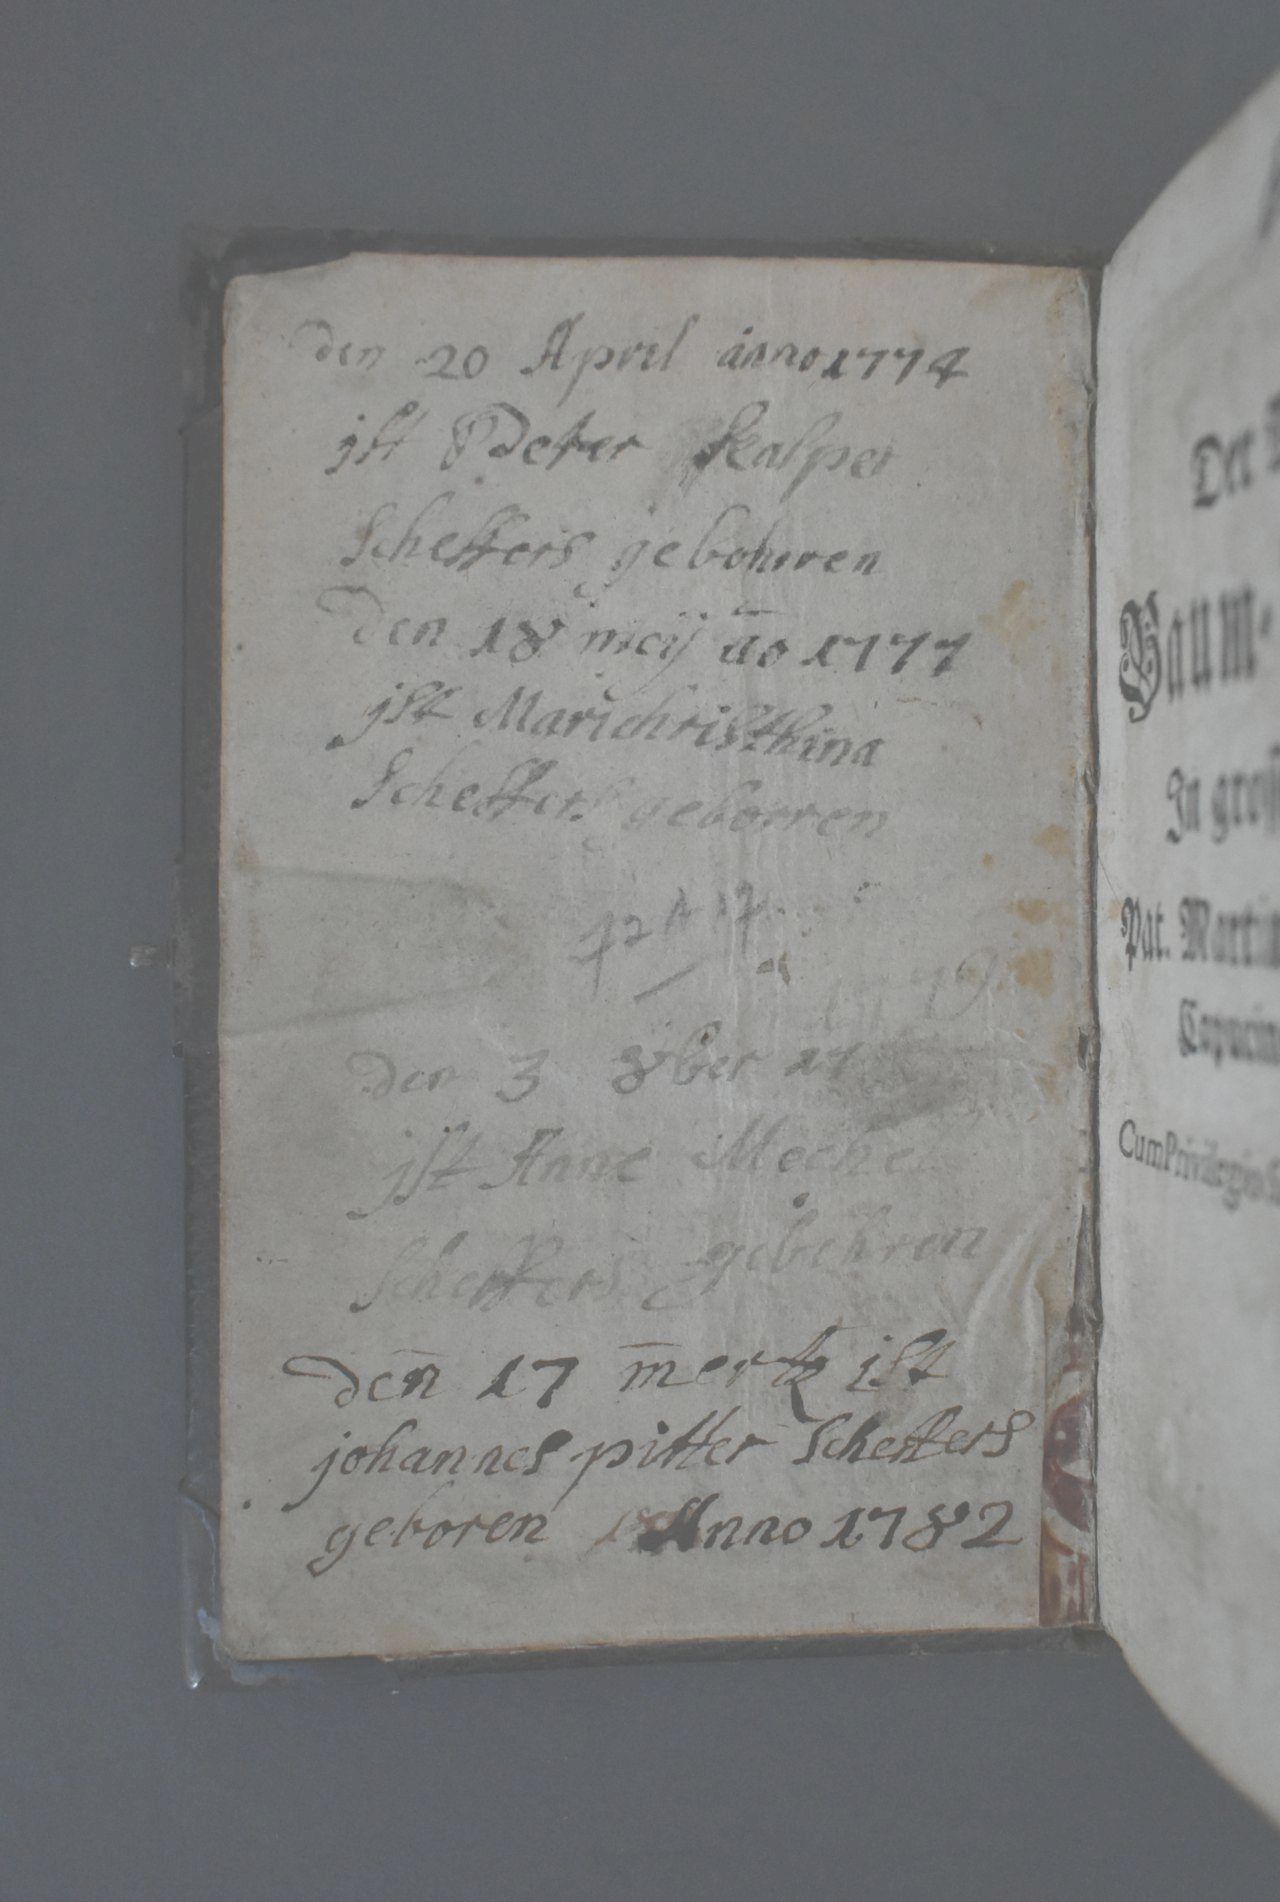 den 20 April anno 1774
jst Peter Kasper
Scheffers gebohren
den 18 meij ao 1777
jst Marichristhina
Scheffers geborren
den 3 8ber 17
jst Anne Meche
Scheffers gebohren
den 17 mertz ist
johannes pitter Scheffers
geboren Anno 1782
Der
Baum-
In groß
Pat. Martin
Capucin
Cum Privilegio